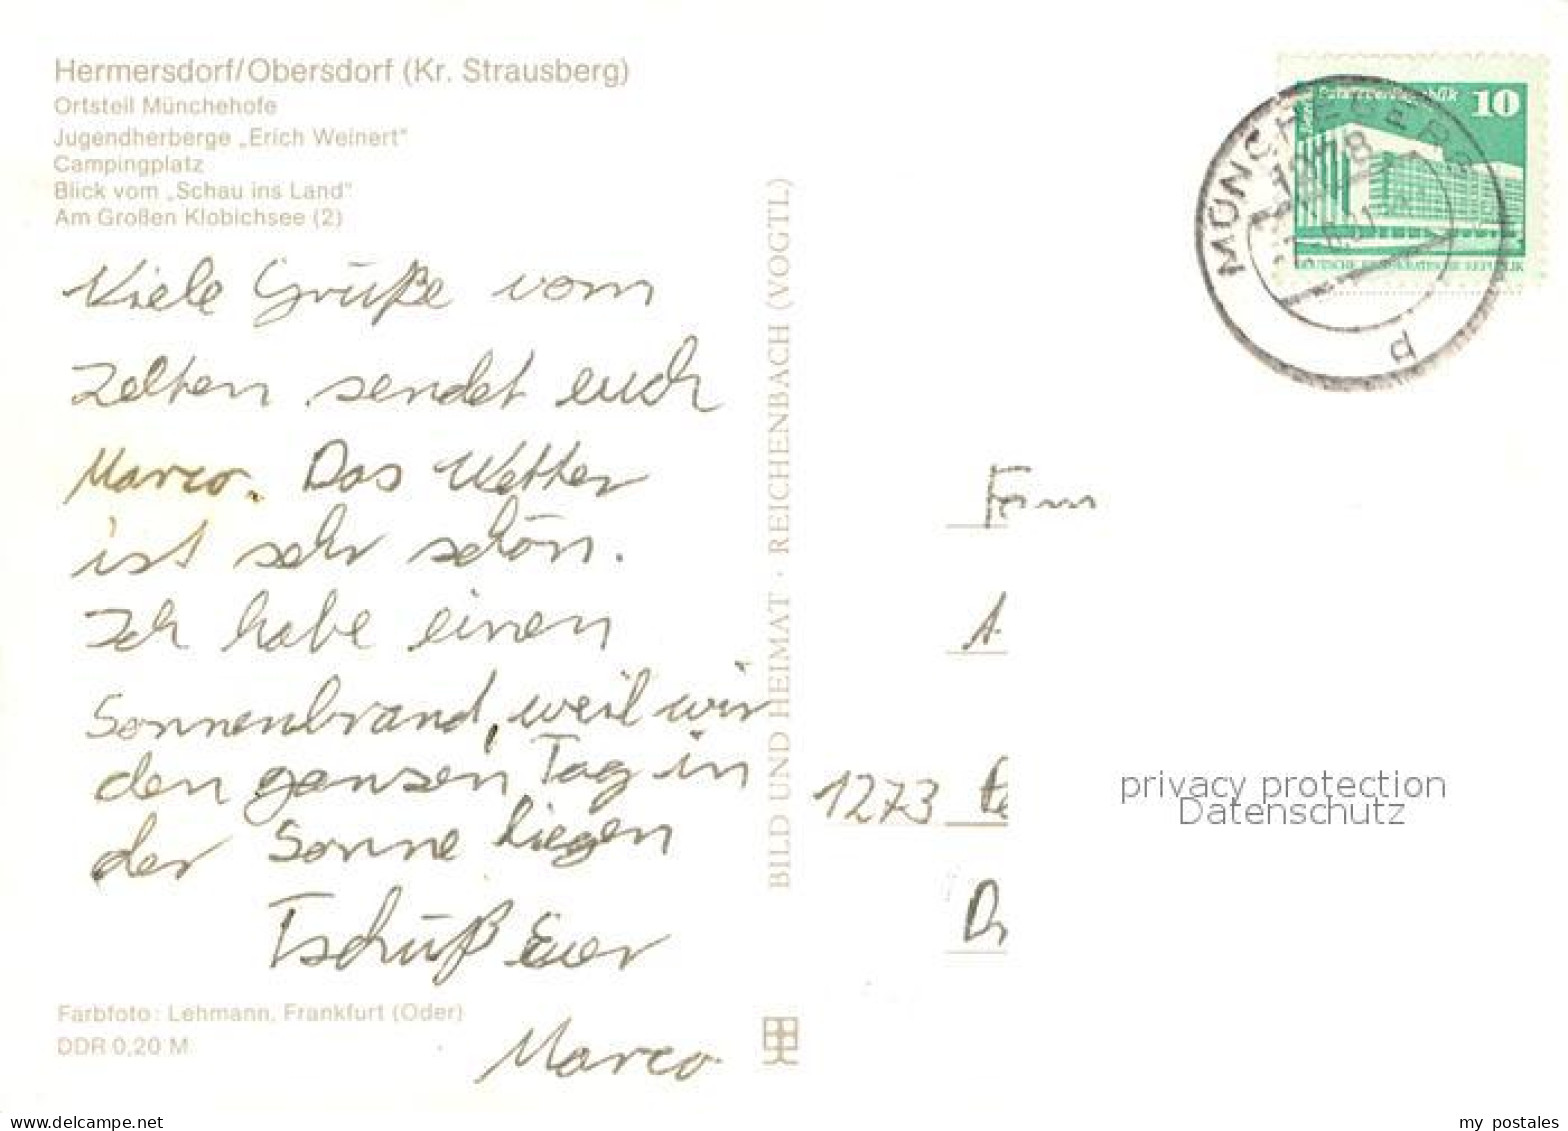 Hermersdorf/Obersdorf (Kr. Strausberg)
Ortsteil Münchehofe
Jugendherberge „Erich Weinert"
Campingplatz
Blick vom „Schau ins Land"
Am Großen Klobichsee (2)
Viele Grüße vom
Zelten sendet euch
Marco. Das Wetter
ist sehr schön.
Ich habe einen
Sonnenbrand, weil wir
den ganzen Tag in
der Sonne liegen
Tschüß Euer
Marco
Farbfoto: Lehmann, Frankfurt (Oder)
DDR 0,20 M
BILD UND HEIMAT · REICHENBACH (VOGTL)
10
DEUTSCHE DEMOKRATISCHE REPUBLIK
MÜNCHEBERG
1278
b
Fam
A
1273
privacy protection
Datenschutz
www.delcampe.net
my_postales